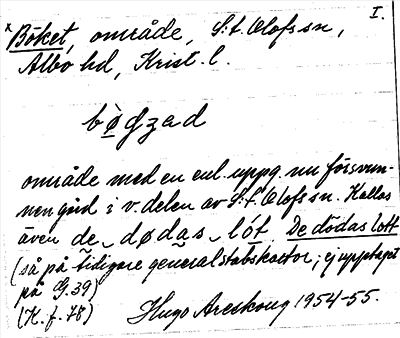 I.
x Böket, område, S:t. Olofs sn,
Albo hd, Krist. l.
område med en enl. uppg. nu försvun-
nen gård i v. delen av S:t. Olofs sn. Kallas
även de dødas lót De dödas lott
(så på tidigare generalstabskartor; ej upptaget
på G. 39)
(K. f. 78) Hugo Areskoug 1954-55.